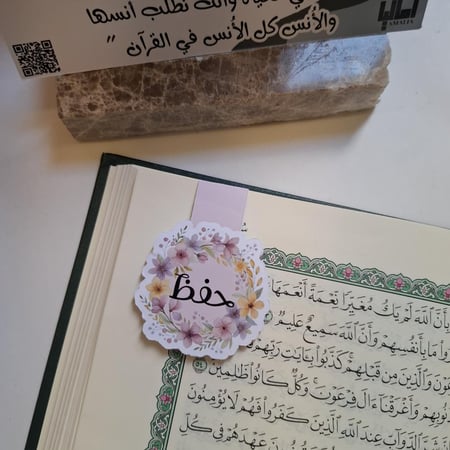 الحياة والله نطلب أنسها
والأنس كل الأنس في القرآن "
AMALIA
حفظ
بِأَنَّ اللَّهَ لَمْ يَكُ مُغَيِّرًا نِّعْمَةً أَنْعَمَهَا
بِأَنفُسِهِمْ وَأَنَّ اللَّهَ سَمِيعٌ عَلِيمٌ
وَالَّذِينَ مِن قَبْلِهِمْ كَذَّبُوا بِآيَاتِ رَبِّهِمْ
بِذُنُوبِهِمْ وَأَغْرَقْنَا آلَ فِرْعَوْنَ وَكُلٌّ كَانُوا ظَالِمِينَ ٥٤
الدَّوَابِّ عِندَ اللَّهِ الَّذِينَ كَفَرُوا فَهُمْ لَا يُؤْمِنُونَ
عَهْدَهُمْ فِي كُلِّ